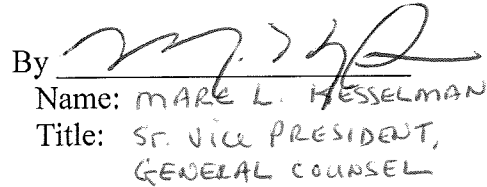 By
Name: MARC L. KESSELMAN
Title: Sr. Vice PRESIDENT,
GENERAL COUNSEL